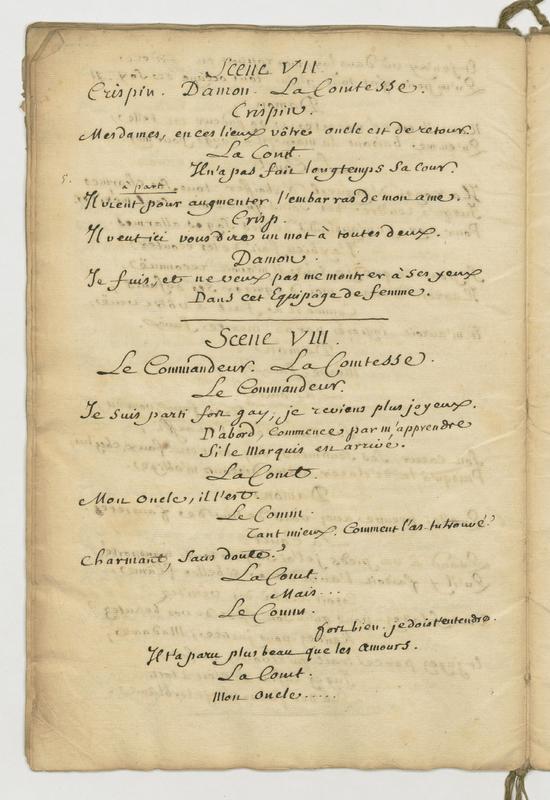 Scene VII.
Crispin. Damon. La Comtesse.
Crispin.
Mesdames, en ces lieux vôtre oncle est de retour.
La Comt.
Il n'a pas fait longtemps sa cour.
5.
à part
Il vient pour augmenter l'embarras de mon ame.
Crisp.
Il veut ici vous dire un mot à toutes deux.
Damon.
Je fuis, et ne veux pas me montrer à ses yeux
Dans cet Equipage de femme.
Scene VIII.
Le Commandeur. La Comtesse.
Le Commandeur.
Je suis parti fort gay, je reviens plus joyeux.
D'abord, commence par m'apprendre
Si le Marquis est arrivé.
La Comt.
Mon Oncle, il l'est.
Le Comm.
Tant mieux. Comment l'as-tu trouvé?
Charmant, sans doute?
La Comt.
Mais...
Le Comm.
fort bien. je dois t'entendre.
Il t'a paru plus beau que les Amours.
La Comt.
Mon Oncle.....